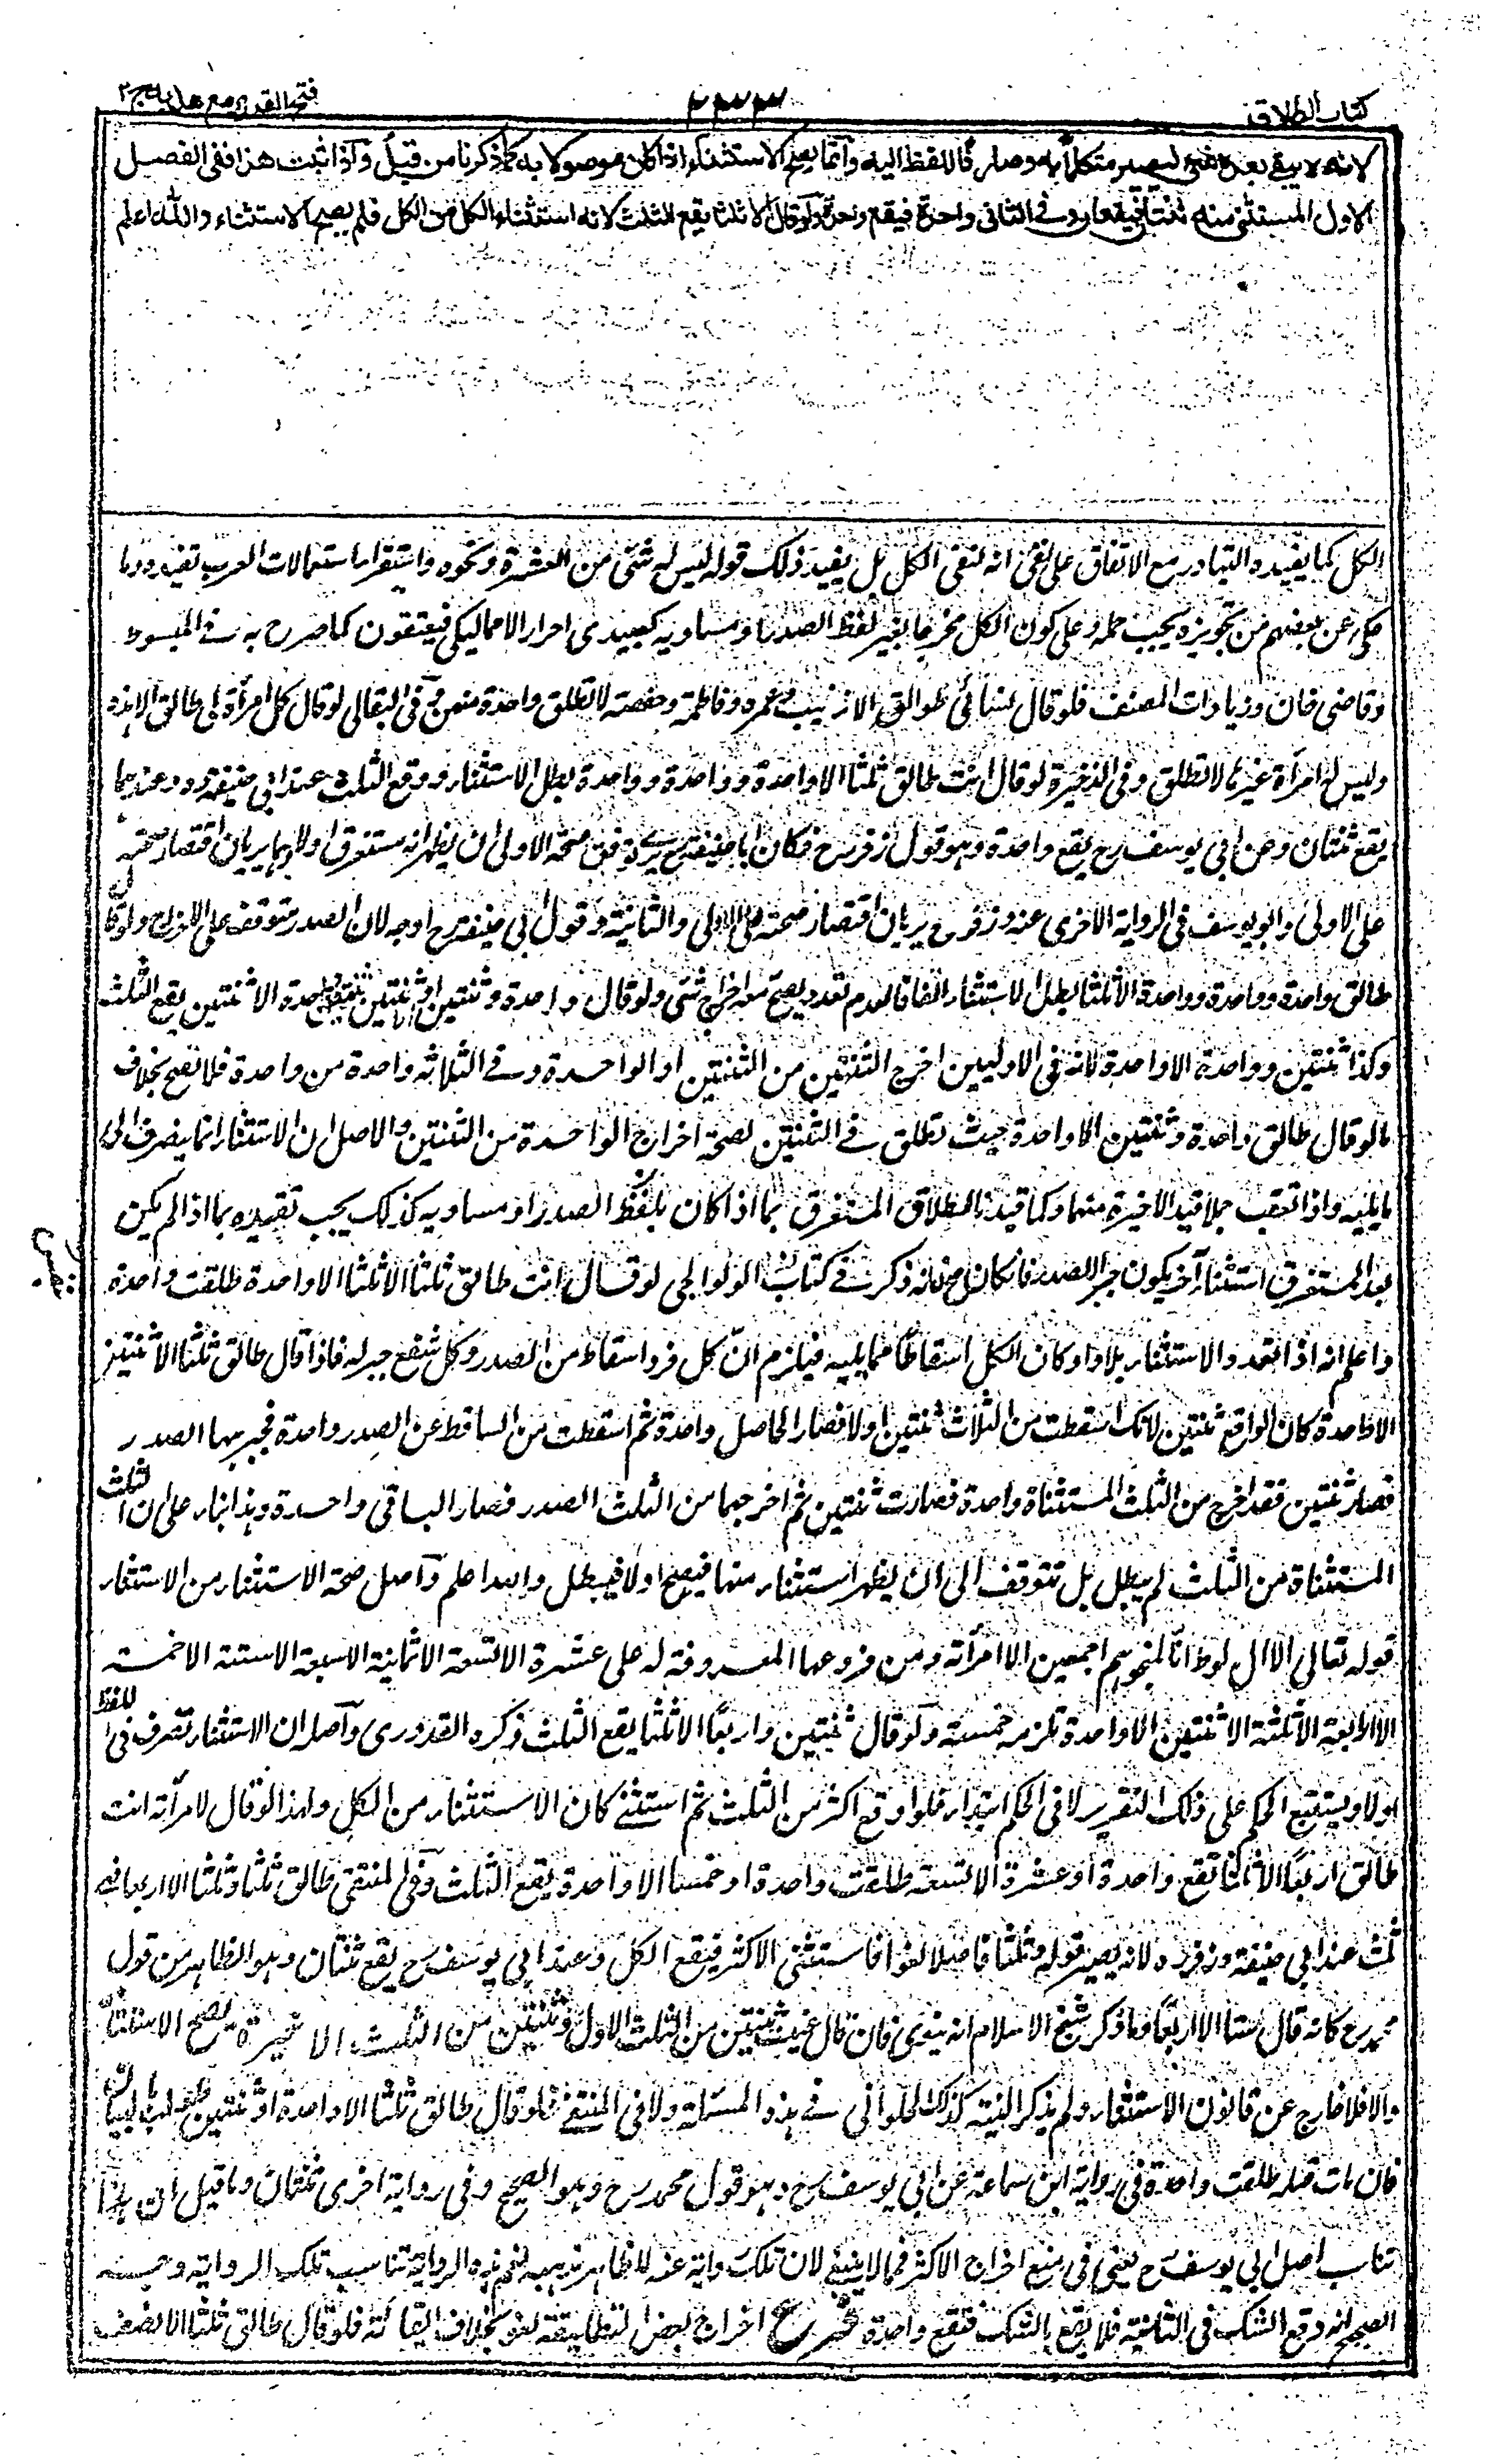 كتاب الطلاق
فتح القدير مع هدايه ج ٢
لانه لا يبقى بعده شئ ليصير متكلما به وصارفا للفظ اليه وانما يصح الاستثناء اذا كان موصولا به كما ذكرنا من قبل واذا ثبت هذا ففي الفصل
الاول المستثنى منه ثنتان فيقعان وفي الثاني واحدة فيقع واحدة ولو قال الا ثلثا يقع الثلث لانه استثناء الكل من الكل فلم يصح الاستثناء والله اعلم
الكل كما يفيده التبادر مع الاتفاق على نفى انه لنفى الكل بل يفيد ذلك قوله ليس له شئ من العشرة ونحوه واستقرار استعمالات العرب تفيده وما
حكى عن بعضهم من تجويزه يجب حمله على كون الكل مخرجا بغير لفظ الصدر او مساويه كعبيدى احرار الا مماليكى فيعتقون كما صرح به فى المبسوط
وقاضى خان وزيادات المصنف فلو قال نسائى طوالق الا زينب وعمرة وفاطمة وحفصة لا تطلق واحدة منهن وفى البقالى لو قال كل امرأة لى طالق الا هذه
وليس له امرأة غيرها لا تطلق وفى الذخيرة لو قال انت طالق ثلثا الا واحدة وواحدة وواحدة بطل الاستثناء ووقع الثلث عند ابى حنيفة رح وعندهما
يقع ثنتان وعن ابى يوسف رح يقع واحدة وهو قول زفر رح فكان ابا حنيفة رح يرى توقف صحة الاولى ان يظهر انه مستغرق اولا وهما يريان اقتصار صحته
على الاولى وابو يوسف فى الرواية الاخرى عنه وزفر رح يريان اقتصار صحته على الاولى والثانية وقول ابى حنيفة رح اوجه لان الصدر متوقف على الاخراج ولو قال
طالق واحدة وواحدة وواحدة الا ثلثا بطل الاستثناء اتفاقا لعدم تعدد يصح معه اخراج شئ ولو قال واحدة وثنتين الا ثنتين او ثنتين وواحدة الا ثنتين يقع الثلث
وكذا ثنتين وواحدة الا واحدة لانه فى الاوليين اخرج الثنتين من الثنتين او الواحدة وفى الثلاثة واحدة من واحدة فلا تصح بخلاف
ما لو قال طالق واحدة وثنتين الا واحدة حيث تطلق فى الثنتين لصحة اخراج الواحدة من الثنتين والاصل ان الاستثناء انما ينصرف الى
ما يليه واذا تعقب جملا قيد الاخيرة منها وكما قيدنا اطلاق المستغرق بما اذا كان بلفظ الصدر او مساويه كذلك يجب تقييده بما اذا لم يكن
بعد المستغرق استثناء آخر يكون جبرا للصدر فان كان صح فانه ذكر فى كتاب الولوالجى لو قال انت طالق ثلثا الا ثلثا الا واحدة طلقت واحدة
واعلم انه اذا تعدد الاستثناء بلا واو كان الكل اسقاطا مما يليه فيلزم ان كل فرد اسقاط من الصدر وكل شفع جبر له فاذا قال طالق ثلثا الا ثنتين
الا واحدة كان الواقع ثنتين لانك اسقطت من الثلاث ثنتين اولا فصار الحاصل واحدة ثم اسقطت من الساقط عن الصدر واحدة فجبر بها الصدر
فصار ثنتين فقد اخرج من الثلث المستثناة واحدة فصارت ثنتين ثم اخرجهما من الثلث الصدر فصار الباقى واحدة وهذا بناء على ان الثلث
المستثناة من الثلث لم يبطل بل تتوقف الى ان يظهر استثناء منها فيصح اولا فيبطل والله اعلم واصل صحة الاستثناء من الاستثناء
قوله تعالى الا ال لوط انا لمنجوهم اجمعين الا امرأته ومن فروعها المعروفة له على عشرة الا تسعة الا ثمانية الا سبعة الا ستة الا خمسة
الا اربعة الا ثلثة الا ثنتين الا واحدة تلزمه خمسة ولو قال ثنتين واربعا الا ثلثا يقع الثلث ذكره القدورى واصله ان الاستثناء تصرف فى اللفظ
اولا ويستتبع الحكم على ذلك التقرير لا فى الحكم ابتداء فلو اوقع اكثر من الثلث ثم استثنى كان الاستثناء من الكل ولهذا لو قال لامرأته انت
طالق اربعا الا ثلثا تقع واحدة او عشرة الا تسعة طلقت واحدة او خمسا الا واحدة يقع الثلث وفى المنتقى طالق ثلثا وثلثا الا اربعا فهى
ثلث عند ابى حنيفة وزفر رح لانه يصير قوله وثلثا فاصلا لغوا فاستثنى الاكثر فيقع الكل وعند ابى يوسف رح يقع ثنتان وهو الظاهر من قول
محمد رح كانه قال ستا الا اربعا وما ذكر شيخ الاسلام انه ينوى فان قال عنيت ثنتين من الثلث الاول وثنتين من الثلث الاخيرة يصح الاستثناء
والا فلا خارج عن قانون الاستثناء ولم يذكر النية كذلك الحلوانى فى هذه المسئلة ولا فى المنتقى فلو قال طالق ثلثا الا واحدة او ثنتين طولب بالبيان
فان مات قبله طلقت واحدة فى رواية ابن سماعة عن ابى يوسف رح وهو قول محمد رح وهو الصحيح وفى رواية اخرى ثنتان وما قيل ان هذا
تناسب اصل ابى يوسف رح يعنى فى منع اخراج الاكثر فما لا ينبغى لان تلك رواية عنه لا ظاهر مذهبه نعم هذه الرواية تناسب تلك الرواية وجه
الصحيح انه وقع الشك فى الثانية فلا يقع بالشك فتقع واحدة فرع اخراج بعض التطليقة لغو بخلاف ايقاعه فلو قال طالق ثلثا الا نصف